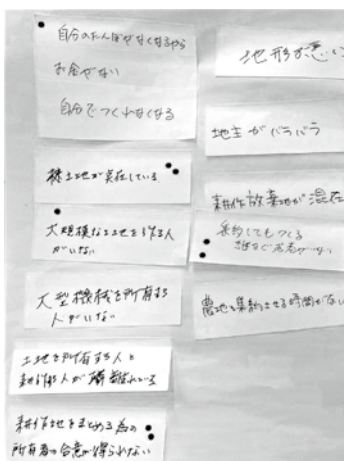 自分のたんぼがなくなるから
お金がない
自分でつくれなくなる
土地が点在している
大規模な土地を作る人
がいない
大型機械を所有する
人がいない
土地を所有する人と
耕作する人が離れている
耕作地をまとめる為の
所有者の合意が得られない
地形が悪い
地主がバラバラ
耕作放棄地が混在
集約してもつくる
農地を集約させる時間がない